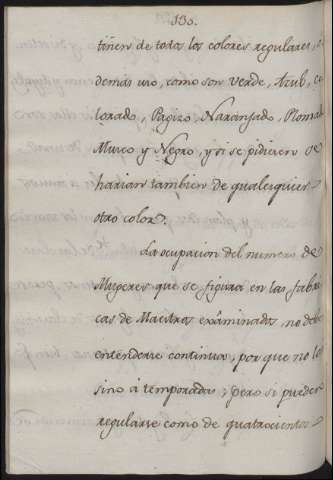 130.
tiñen de todos los colores regulares, y
demás uso, como son Verde, Azul, co
lorado, Pagizo, Naranjado, Plomo
Musco y Negro, y si se pidiesen se
harian tambien de qualesquier
otro color.
La ocupacion del numero de
Mugeres que se figura en las fabri
cas de Maestras exâminadas, no debe
entenderse continua, por que no lo
sino â temporadas; pero se pueden
regularse como de quatrocientas